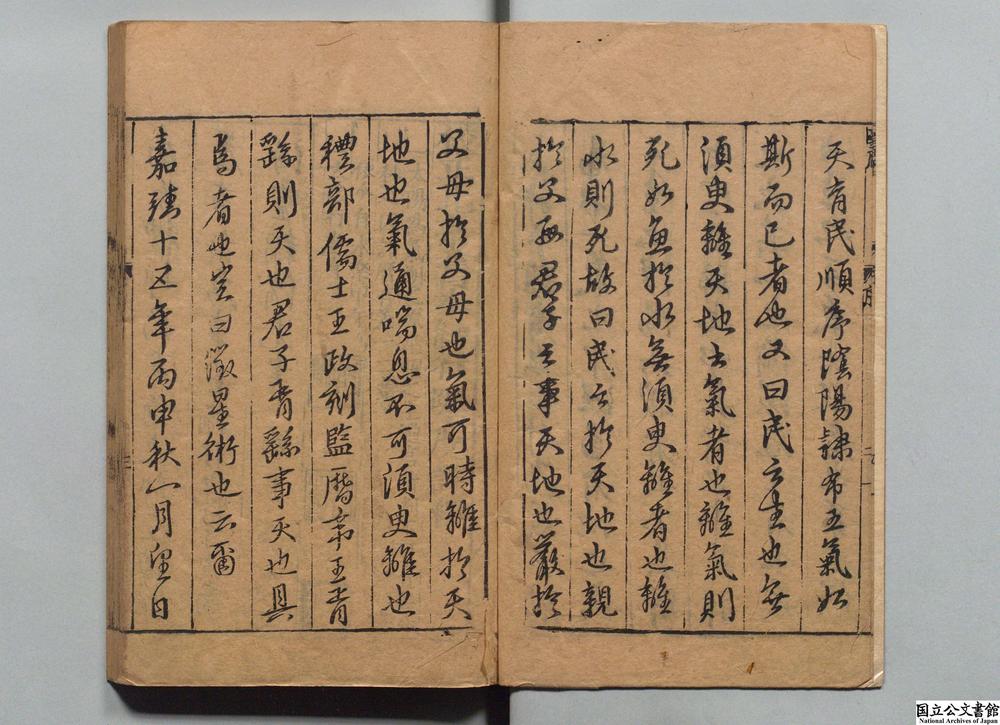 天育民順序陰陽隸布五氣如
斯而已者也又曰民之生也無
須臾離天地之氣者也離氣則
死如魚於水無須臾離者也離
水則死故曰民之於天地也親
於父母君子之事天地也嚴於
父母於父母也氣可時離於天
地也氣通喘息不可須臾離也
禮部儒士王政刻監曆
則天也君子胥繇事天也具
焉者也豈曰徵星術也云爾
嘉靖十五年丙申秋八月望日
国立公文書館
National Archives of Japan